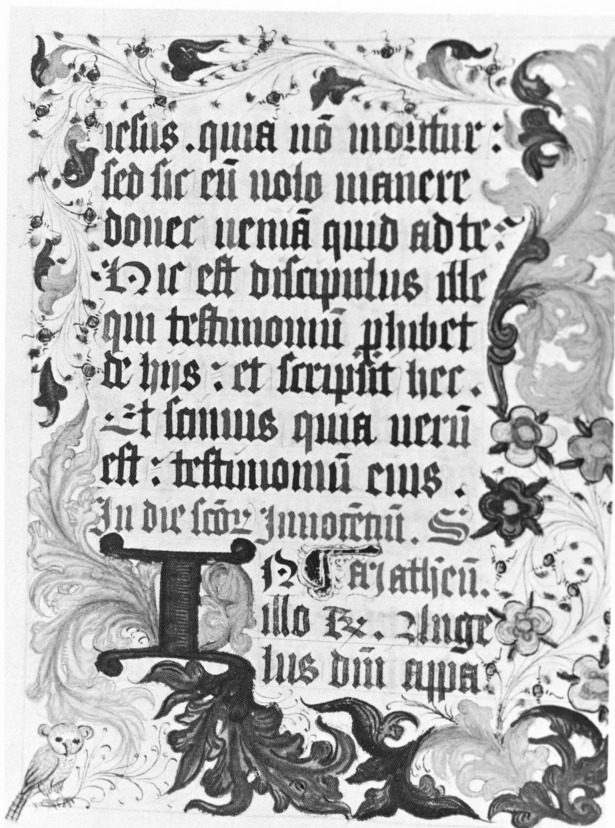 iesus . quia nō moritur :
sed sic eū uolo manere
donec ueniā quid ad te :
Hic est discipulus ille
qui testimoniū phibet
de hijs : et scripsit hec .
Et scimus quia uerū
est : testimoniū eius .
In die scōꝝ Innocētiū . S
IN matheū .
illo t̄x . Ange
lus dn̄i appa